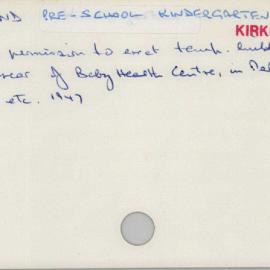 ND PRE-SCHOOL KINDERGARTEN
KIRK
permission to erect temp.
rear of Baby Health Centre, in
etc. 1947